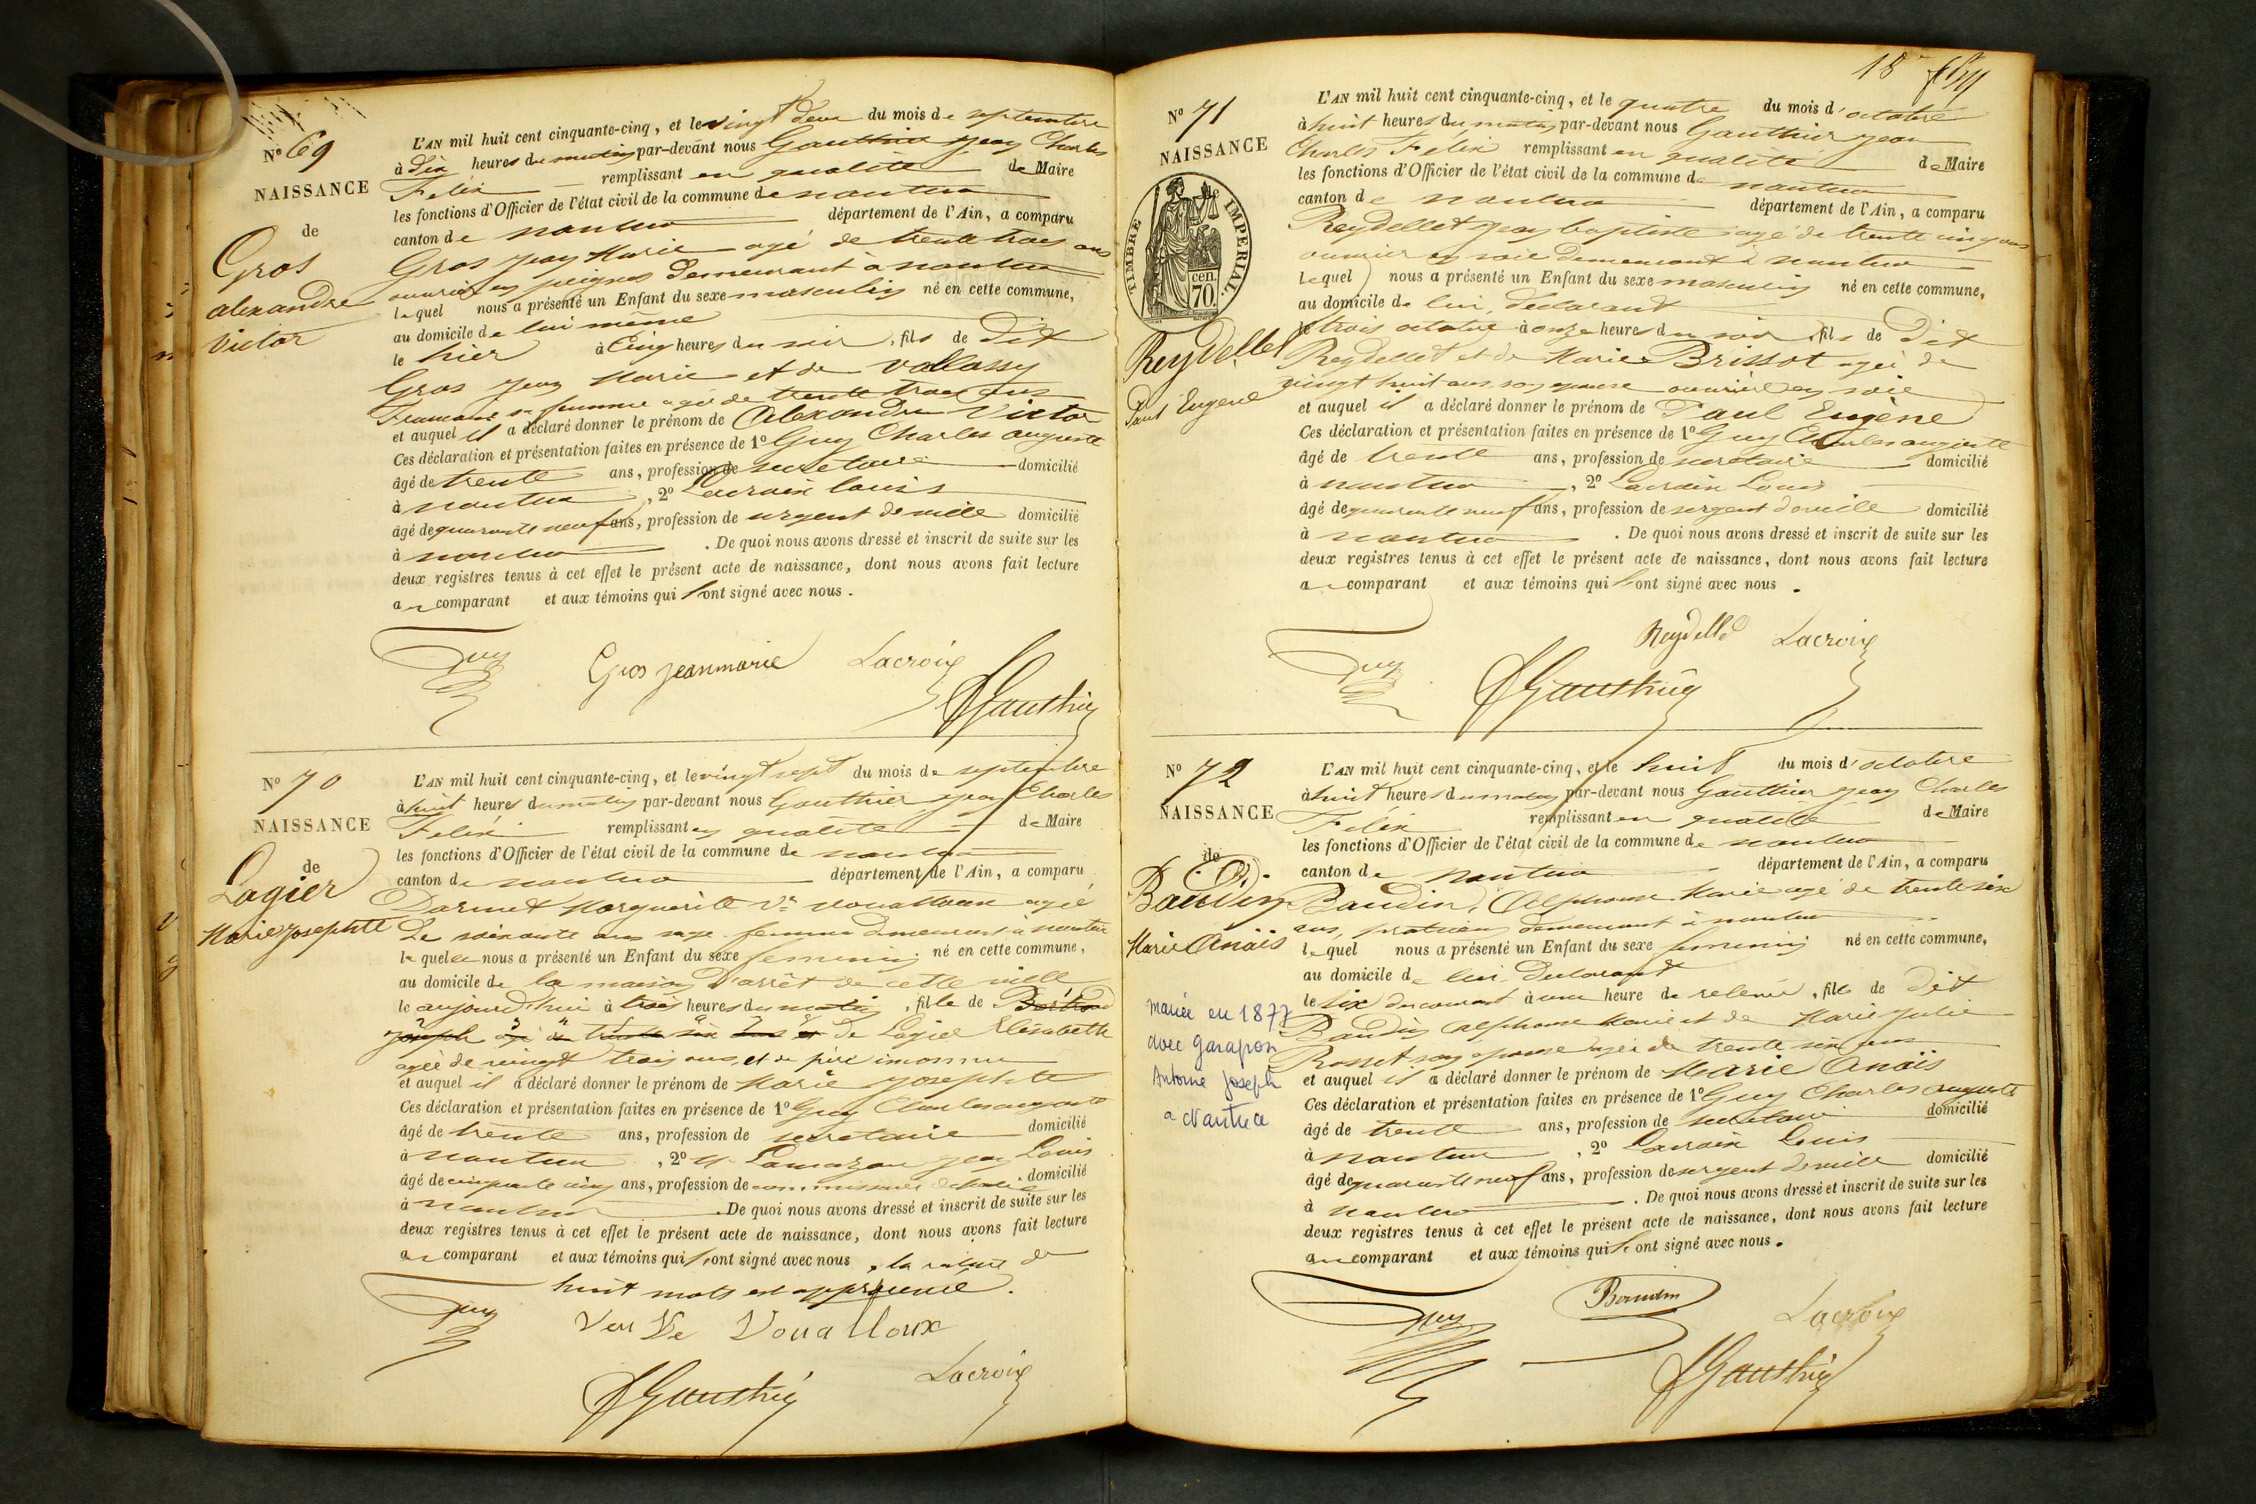 N° 69
NAISSANCE
de
Gros
alexandre
Victor
L'AN mil huit cent cinquante-cinq, et le vingt deux du mois de septembre
à dix heures du matin par-devant nous Gauthier jean Charles
Felix remplissant en qualité de Maire
les fonctions d'Officier de l'état civil de la commune de nantua
canton de nantua département de l'Ain, a comparu
Gros jean Marie agé de trente trois ans
ouvrier en peignes demeurant à nantua
lequel nous a présenté un Enfant du sexe masculin né en cette commune,
au domicile de lui même
le hier à Cinq heures du soir, fils de Dit
Gros jean Marie et de vallassy
sa femme agée de trente trois ans
et auquel il a déclaré donner le prénom de Alexandre Victor
Ces déclaration et présentation faites en présence de 1° Guy Charles auguste
âgé de trente ans, profession de secretaire domicilié
à nantua, 2° Lacroix louis
âgé de quarante neuf ans, profession de sergent de ville domicilié
à nantua. De quoi nous avons dressé et inscrit de suite sur les
deux registres tenus à cet effet le présent acte de naissance, dont nous avons fait lecture
au comparant et aux témoins qui l'ont signé avec nous.
Guy Gros jeanmarie Lacroix
Gauthier
N° 70
NAISSANCE
de
Lagier
Marie josephte
L'AN mil huit cent cinquante-cinq, et le vingt sept du mois de septembre
à huit heures du matin par-devant nous Gauthier jean Charles
Felix remplissant en qualité de Maire
les fonctions d'Officier de l'état civil de la commune de nantua
canton de nantua département de l'Ain, a comparu
Darmet Marguerite Ve vouailloux agée
de soixante ans sage femme demeurant à nantua
laquelle nous a présenté un Enfant du sexe feminin né en cette commune,
au domicile de la maison D'arrêt de cette ville
le aujourd'hui à trois heures du matin, fille de
joseph agé de trente six ans et de Lagier Elisabeth
agée de vingt trois ans, et de père inconnu
et auquel il a déclaré donner le prénom de Marie josephte
Ces déclaration et présentation faites en présence de 1° Guy Charles auguste
âgé de trente ans, profession de secretaire domicilié
à nantua, 2° jean Louis
âgé de cinquante cinq ans, profession de commissaire de police domicilié
à nantua. De quoi nous avons dressé et inscrit de suite sur les
deux registres tenus à cet effet le présent acte de naissance, dont nous avons fait lecture
au comparant et aux témoins qui l'ont signé avec nous, la rature de
huit mots est approuvée.
Guy Ve Vouailloux
Gauthier Lacroix
18
N° 71
NAISSANCE
de
TIMBRE IMPERIAL.
70 cen.
Reydellet
Paul Eugene
L'AN mil huit cent cinquante-cinq, et le quatre du mois d'octobre
à huit heures du matin par-devant nous Gauthier jean
Charles Felix remplissant en qualité de Maire
les fonctions d'Officier de l'état civil de la commune de nantua
canton de nantua département de l'Ain, a comparu
Reydellet jean baptiste agé de trente cinq ans
ouvrier en soie demeurant à nantua
lequel nous a présenté un Enfant du sexe masculin né en cette commune,
au domicile de lui, declarant
le trois octobre à onze heures du soir, fils de Dit
Reydellet et de Marie Brissot agée de
vingt huit ans, son epouse ouvrière en soie
et auquel il a déclaré donner le prénom de Paul Eugène
Ces déclaration et présentation faites en présence de 1° Guy Charles auguste
âgé de trente ans, profession de secretaire domicilié
à nantua, 2° Lacroix Louis
âgé de quarante neuf ans, profession de sergent de ville domicilié
à nantua. De quoi nous avons dressé et inscrit de suite sur les
deux registres tenus à cet effet le présent acte de naissance, dont nous avons fait lecture
au comparant et aux témoins qui l'ont signé avec nous.
Reydellet Lacroix
Guy Gauthier
N° 72
NAISSANCE
de
Baudin
Marie Anaïs
mariée en 1877
avec Garapon
Antoine Joseph
a Nantua
L'AN mil huit cent cinquante-cinq, et le huit du mois d'octobre
à huit heures du matin par-devant nous Gauthier jean Charles
Felix remplissant en qualité de Maire
les fonctions d'Officier de l'état civil de la commune de nantua
canton de nantua département de l'Ain, a comparu
Baudin, Alphonse Marie agé de trente six
ans, demeurant à nantua
lequel nous a présenté un Enfant du sexe feminin né en cette commune,
au domicile de lui Declarant
le six du courant à une heure de relevée, fille de Dit
Baudin alphonse Marie et de Marie julie
Rosset son epouse agée de trente six ans
et auquel il a déclaré donner le prénom de Marie Anaïs
Ces déclaration et présentation faites en présence de 1° Guy Charles auguste
âgé de trente ans, profession de secretaire domicilié
à nantua, 2° Lacroix Louis
âgé de quarante neuf ans, profession de sergent de ville domicilié
à nantua. De quoi nous avons dressé et inscrit de suite sur les
deux registres tenus à cet effet le présent acte de naissance, dont nous avons fait lecture
au comparant et aux témoins qui l'ont signé avec nous.
Guy Baudin Lacroix
Gauthier